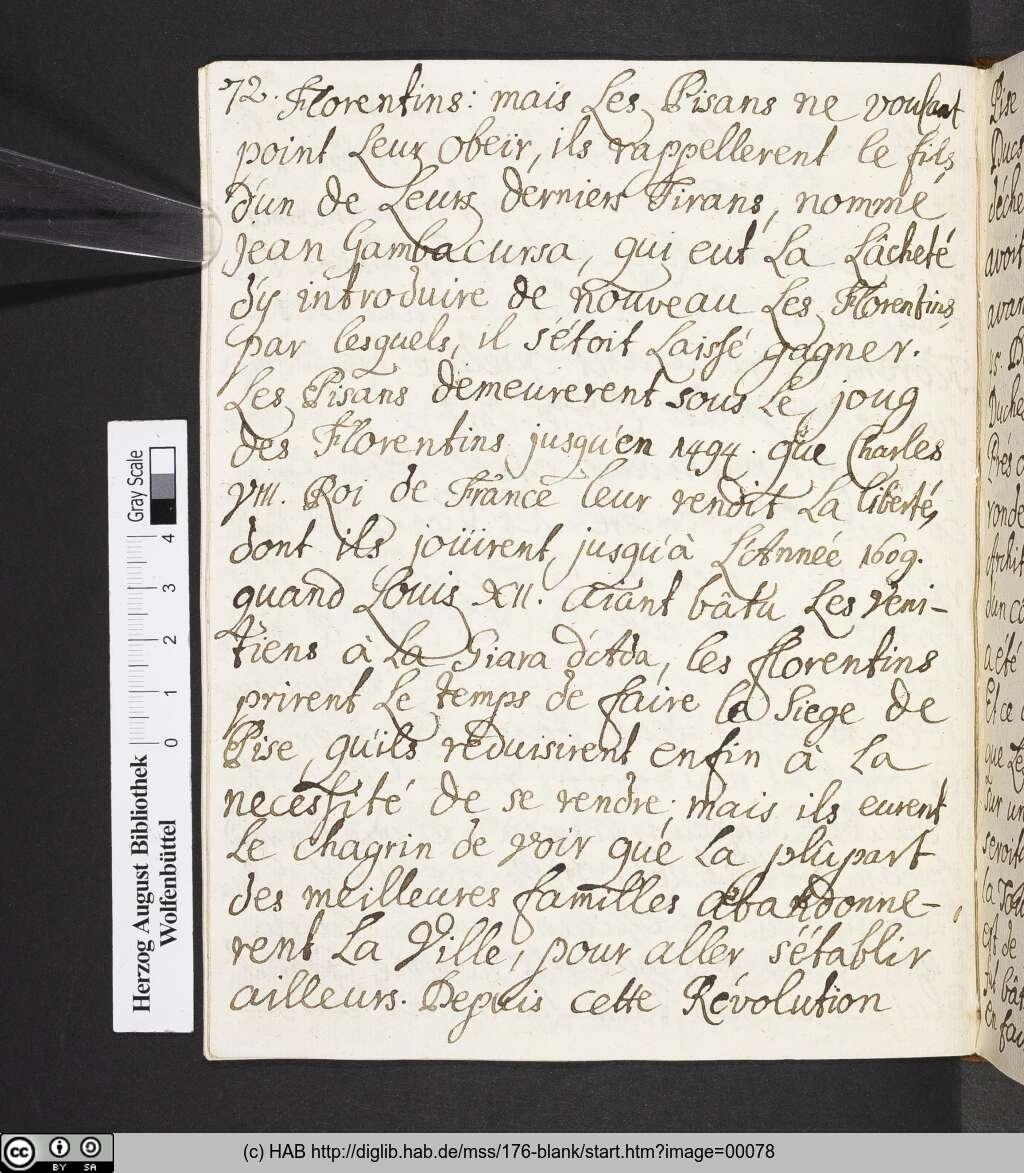 72. Florentins: mais Les Pisans ne voulant
point Leur obeïr, ils rappellerent le fils
d'un de Leurs derniers Tirans, nommé
Jean Gambacursa, qui eut La Lâcheté
d'y introduire de nouveau Les Florentins,
par lesquels, il s'étoit Laissé gagner.
Les Pisans demeurerent sous Le joug
des Florentins jusqu'en 1494. que Charles
VIII. Roi de France leur rendit La liberté,
dont ils joüirent jusqu'à L'Année 1609.
quand Louis XII. aiant bâtu Les Veni-
tiens à La Giara d'Adda, les florentins
prirent Le temps de faire le Siege de
Pise, qu'ils reduisirent enfin à La
necessité de se rendre; mais ils eurent
Le chagrin de voir que La plûpart
des meilleures familles abandonne-
rent La Ville, pour aller s'établir
ailleurs. Depuis cette Révolution
Pise
Ducs
avoit
Herzog August Bibliothek
Wolfenbüttel
0 1 2 3 4
Gray Scale
cc BY SA
(c) HAB http://diglib.hab.de/mss/176-blank/start.htm?image=00078